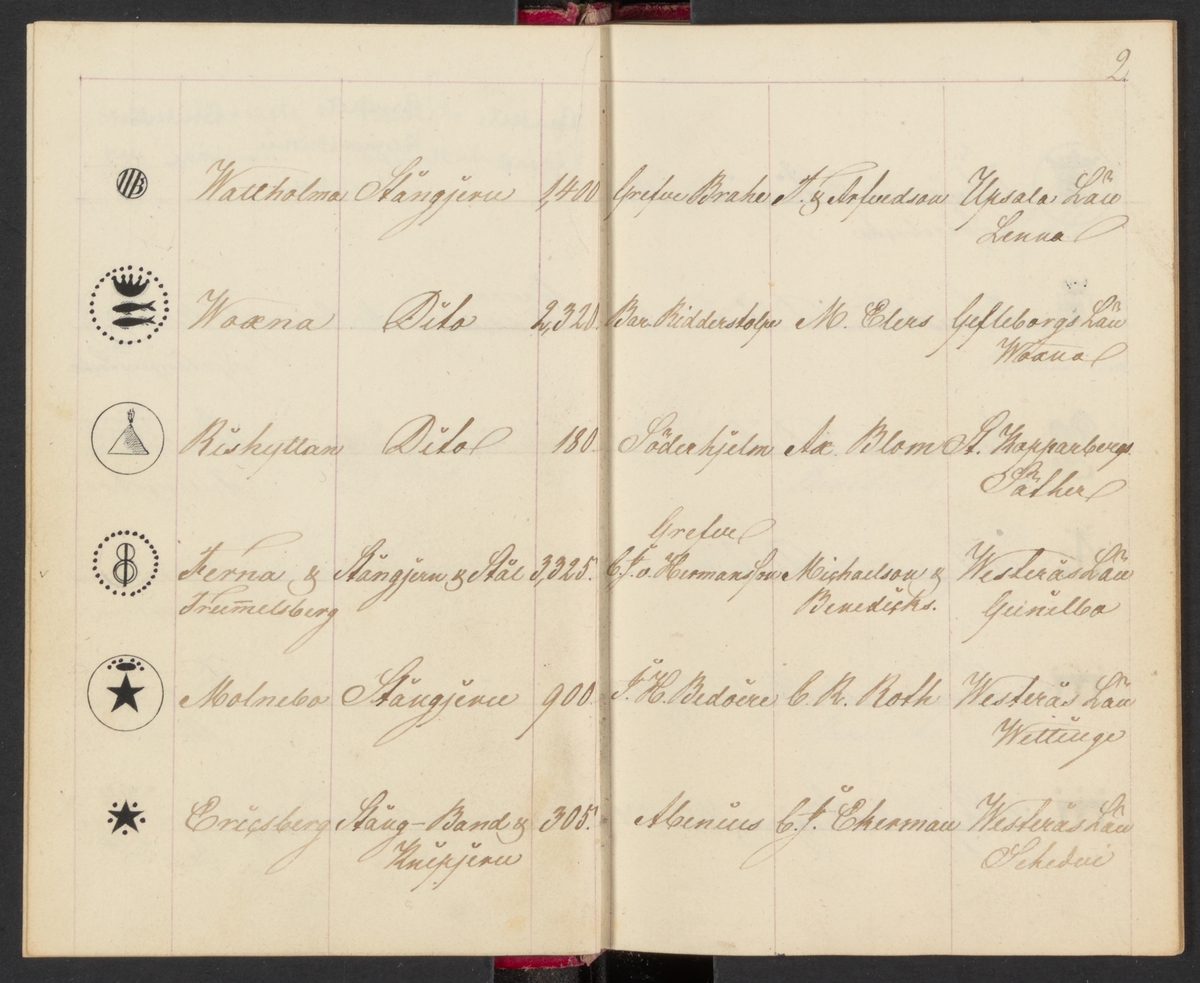 2
Wattholma Stångjern 1,400 Grefve Brahe T. & Arfvedson Upsala Län
Lenna
Woxna Dito 2,320. Bar. Ridderstolpe M. Elers Gefleborgs Län
Woxna
Rishyttan Dito 180 Söderhjelm Ax. Blom St. Kopparbergs
Säther
Grefve
Ferna & Stångjern & Stål 3,325. C. J. v. Hermansson Michaelson & Westerås Län
Trum̄elsberg Benedicks. Gunilbo
Molnebo Stångjern 900 J. H. Bedoire C. R. Roth Westerås Län
Wittinge
Ericsberg Stång-Band & 305. Abenius C. J. Ekerman Westerås Län
Knipjern Schedvi